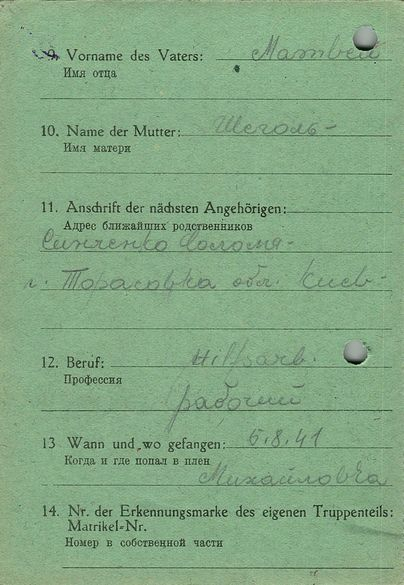 9. Vorname des Vaters: Матвей
Имя отца
10. Name der Mutter: Щеголь-
Имя матери
11. Anschrift der nächsten Angehörigen:
Адрес ближайших родственников
Синченко Соломя-
г. Торасовка обл. Киев-
12. Beruf: Hilfsarb.
Профессия
рабочий
13 Wann und wo gefangen: 6.8.41
Когда и где попал в плен
Михайловка
14. Nr. der Erkennungsmarke des eigenen Truppenteils:
Matrikel-Nr.
Номер в собственной части